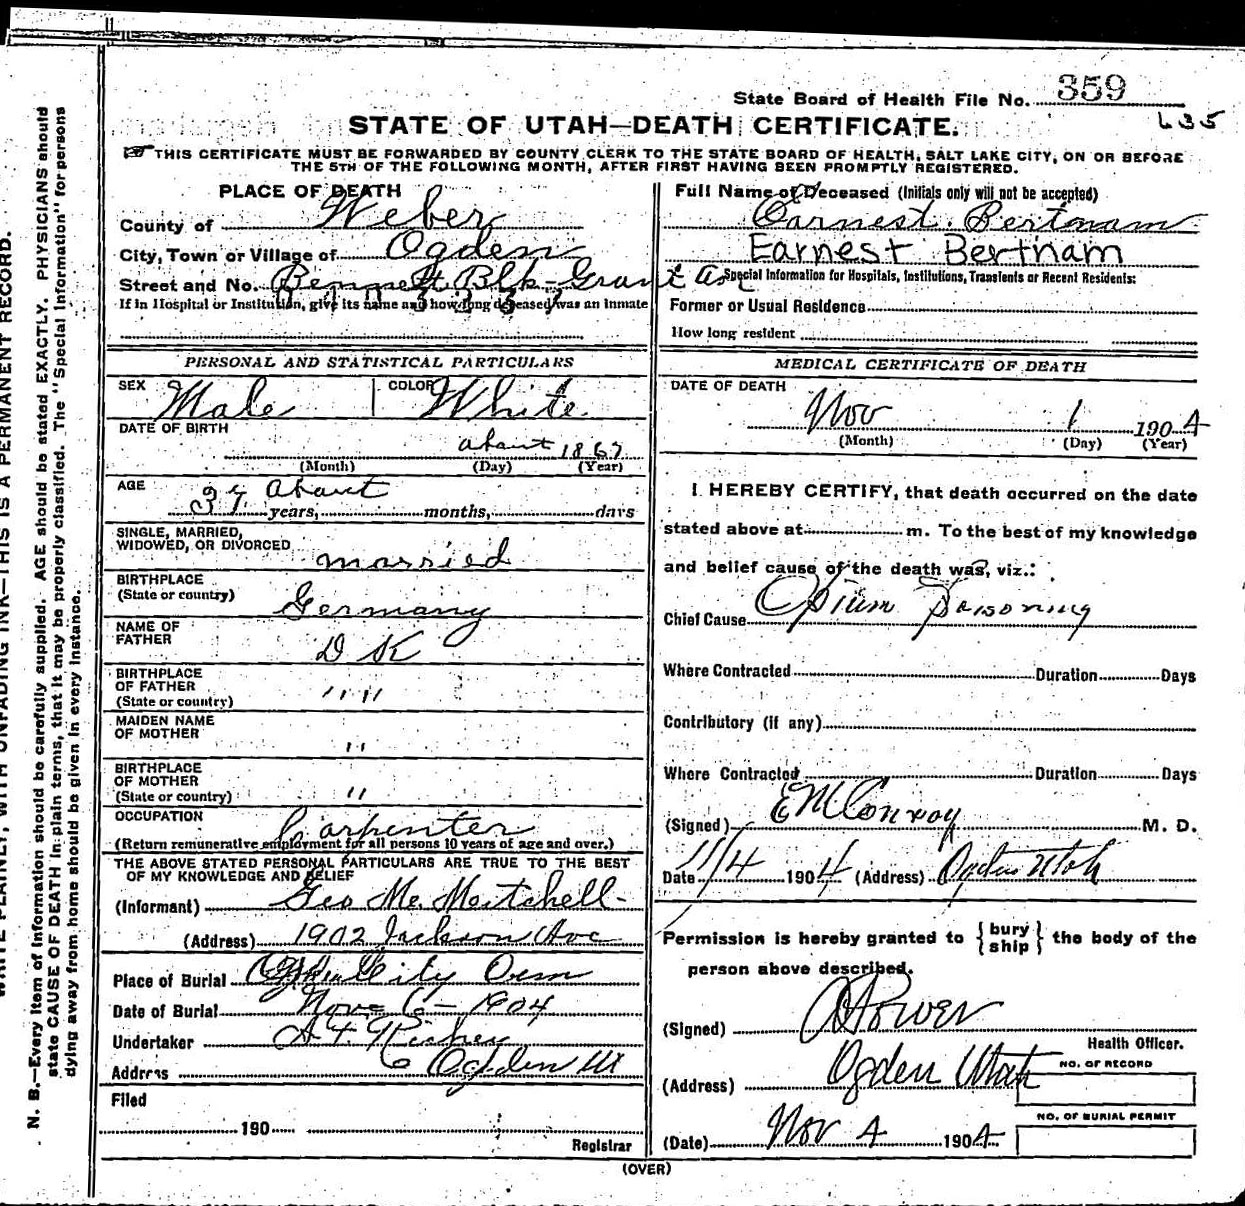 State Board of Health File No. 359
635
STATE OF UTAH—DEATH CERTIFICATE.
THIS CERTIFICATE MUST BE FORWARDED BY COUNTY CLERK TO THE STATE BOARD OF HEALTH, SALT LAKE CITY, ON OR BEFORE
THE 5TH OF THE FOLLOWING MONTH, AFTER FIRST HAVING BEEN PROMPTLY REGISTERED.
PLACE OF DEATH
County of Weber
City, Town or Village of Ogden
Street and No. Bennett Blk - Grant Av
If in Hospital or Institution, give its name and how long deceased was an inmate
PERSONAL AND STATISTICAL PARTICULARS
SEX Male COLOR White
DATE OF BIRTH
about 1867
(Month) (Day) (Year)
AGE
37 about years, months, days
SINGLE, MARRIED,
WIDOWED, OR DIVORCED married
BIRTHPLACE
(State or country) Germany
NAME OF
FATHER D K
BIRTHPLACE
OF FATHER
(State or country) " "
MAIDEN NAME
OF MOTHER "
BIRTHPLACE
OF MOTHER
(State or country) "
OCCUPATION Carpenter
(Return remunerative employment for all persons 10 years of age and over.)
THE ABOVE STATED PERSONAL PARTICULARS ARE TRUE TO THE BEST
OF MY KNOWLEDGE AND BELIEF
(Informant) Geo Mc. Mitchell
(Address) 1902 Jackson Ave
Place of Burial Ogden City Cem
Date of Burial Nov 6 - 1904
Undertaker
Address Ogden Ut
Filed
190
Registrar
Full Name of Deceased (Initials only will not be accepted)
Earnest Bertnam
Earnest Bertnam
Special Information for Hospitals, Institutions, Transients or Recent Residents:
Former or Usual Residence
How long resident
MEDICAL CERTIFICATE OF DEATH
DATE OF DEATH
Nov 1 1904
(Month) (Day) (Year)
I HEREBY CERTIFY, that death occurred on the date
stated above at m. To the best of my knowledge
and belief cause of the death was, viz.:
Chief Cause Opium Poisoning
Where Contracted Duration Days
Contributory (if any)
Where Contracted Duration Days
(Signed) E M Conroy M. D.
Date 11/4 1904 (Address) Ogden Utah
Permission is hereby granted to { bury ship } the body of the
person above described.
(Signed) Power
Health Officer.
(Address) Ogden Utah
NO. OF RECORD
NO. OF BURIAL PERMIT
(Date) Nov 4 1904
(OVER)
N. B.—Every item of information should be carefully supplied. AGE should be stated EXACTLY. PHYSICIANS should
state CAUSE OF DEATH in plain terms, that it may be properly classified. The "Special Information" for persons
dying away from home should be given in every instance.
WRITE PLAINLY, WITH UNFADING INK—THIS IS A PERMANENT RECORD.